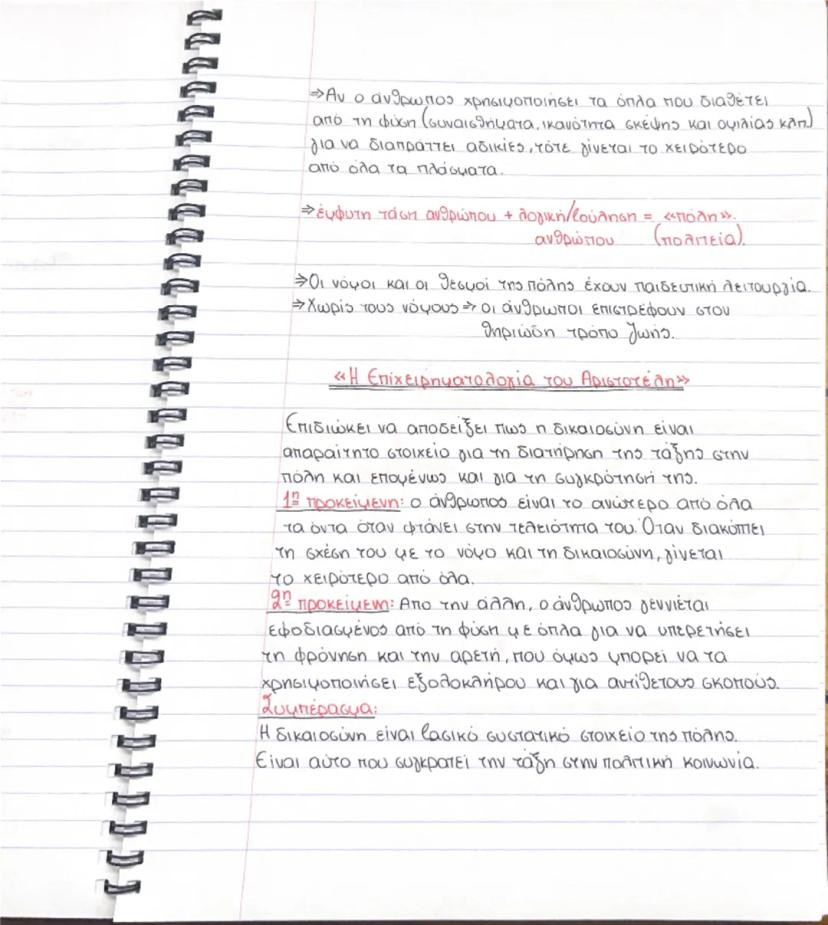 ⇒Αν ο άνθρωπος χρησιμοποιήσει τα όπλα που διαθέτει
από τη φύση (συναισθήματα, ικανότητα σκέψης και ομιλίας κλπ)
για να διαπράττει αδικίες, τότε γίνεται το χειρότερο
από όλα τα πλάσματα.
⇒έμφυτη τάση ανθρώπου + λογική/βούληση = «πόλη».
ανθρώπου (πολιτεία).
⇒Οι νόμοι και οι θεσμοί της πόλης έχουν παιδευτική λειτουργία.
⇒Χωρίς τους νόμους ⇒ οι άνθρωποι επιστρέφουν στον
θηριώδη τρόπο ζωής.
«Η Επιχειρηματολογία του Αριστοτέλη»
Επιδιώκει να αποδείξει πως η δικαιοσύνη είναι
απαραίτητο στοιχείο για τη διατήρηση της τάξης στην
πόλη και επομένως και για τη συγκρότησή της.
1η προκείμενη: ο άνθρωπος είναι το ανώτερο από όλα
τα όντα όταν φτάνει στην τελειότητα του. Όταν διακόπτει
τη σχέση του με το νόμο και τη δικαιοσύνη, γίνεται
το χειρότερο από όλα.
2η προκείμενη: Απο την άλλη, ο άνθρωπος γεννιέται
εφοδιασμένος από τη φύση με όπλα για να υπερετήσει
τη φρόνηση και την αρετή, που όμως μπορεί να τα
χρησιμοποιήσει εξολοκλήρου και για αντίθετους σκοπούς.
Συμπέρασμα:
Η δικαιοσύνη είναι βασικό συστατικό στοιχείο της πόλης.
Είναι αυτο που συγκρατεί την τάξη στην πολιτική κοινωνία.